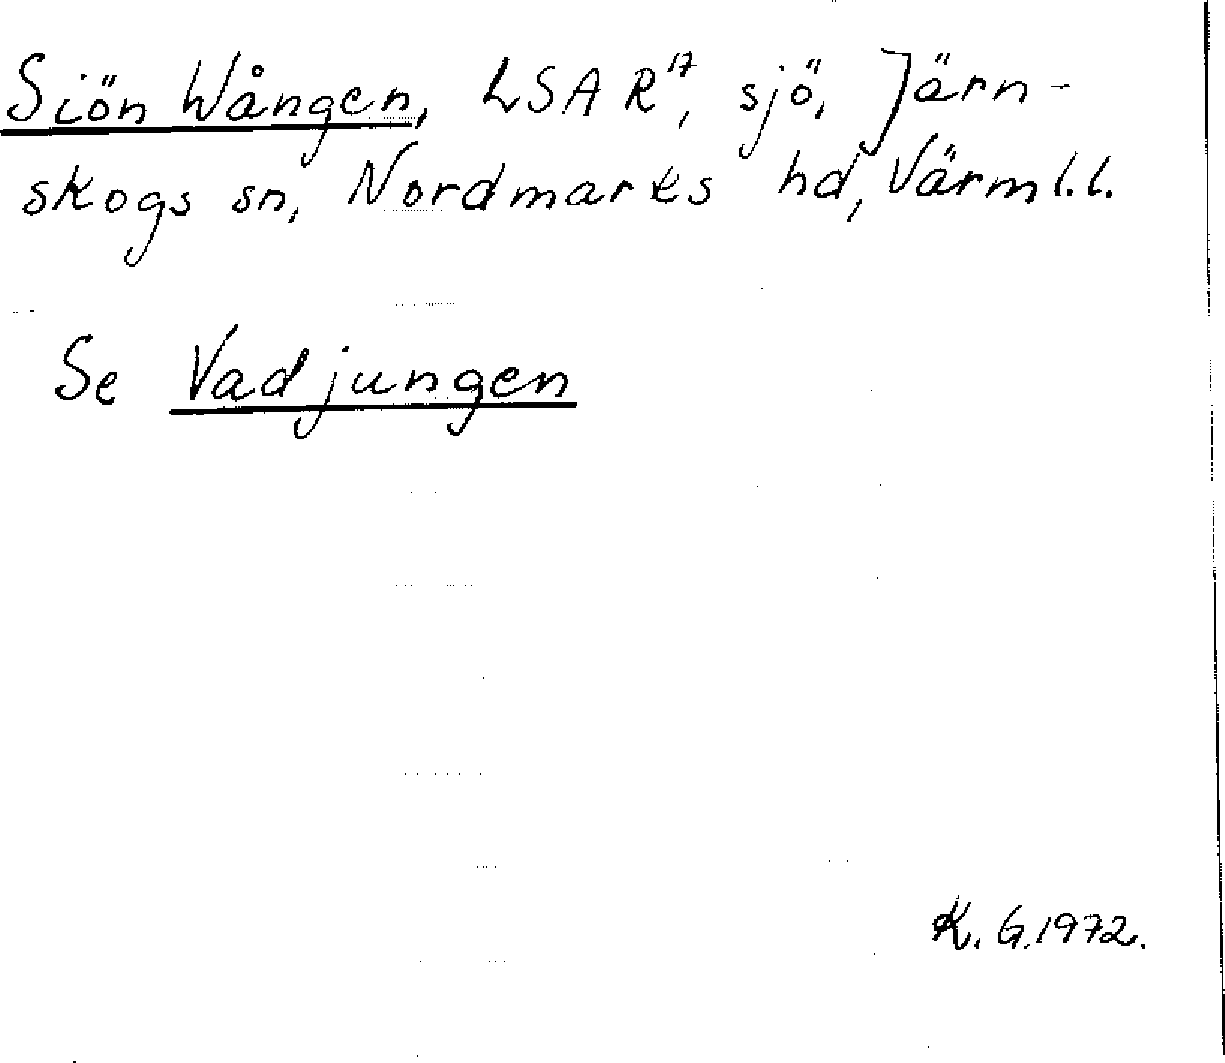 Siön Wången, LSA R17, sjö, Järn-
skogs sn, Nordmarks hd, Värml.l.
Se Vadjungen
K. G. 1972.